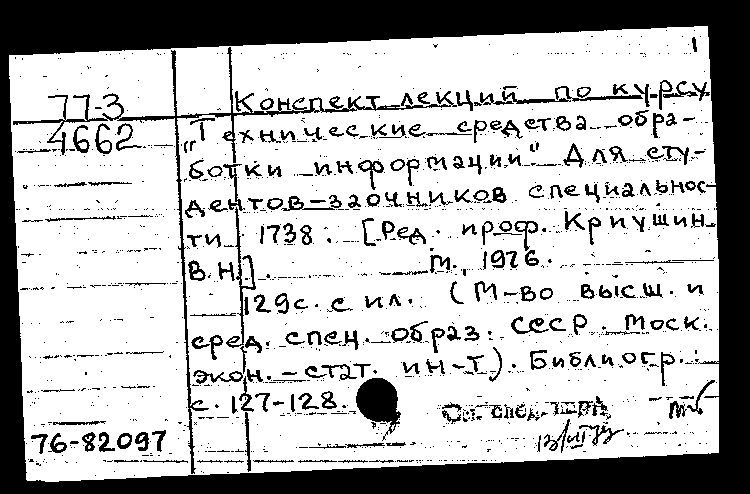 1
77-3
4662
Конспект лекций по курсу
„Технические средства обра-
ботки информации". Для сту-
дентов-заочников специальнос-
ти 1738. [Ред. проф. Криушин
В.Н.]. М., 1976.
129с. с ил. (М-во высш. и
сред. спец. образ. СССР. Моск.
экон.-стат. ин-т). Библиогр.:
с. 127-128.
См. след. карт.
76-82097